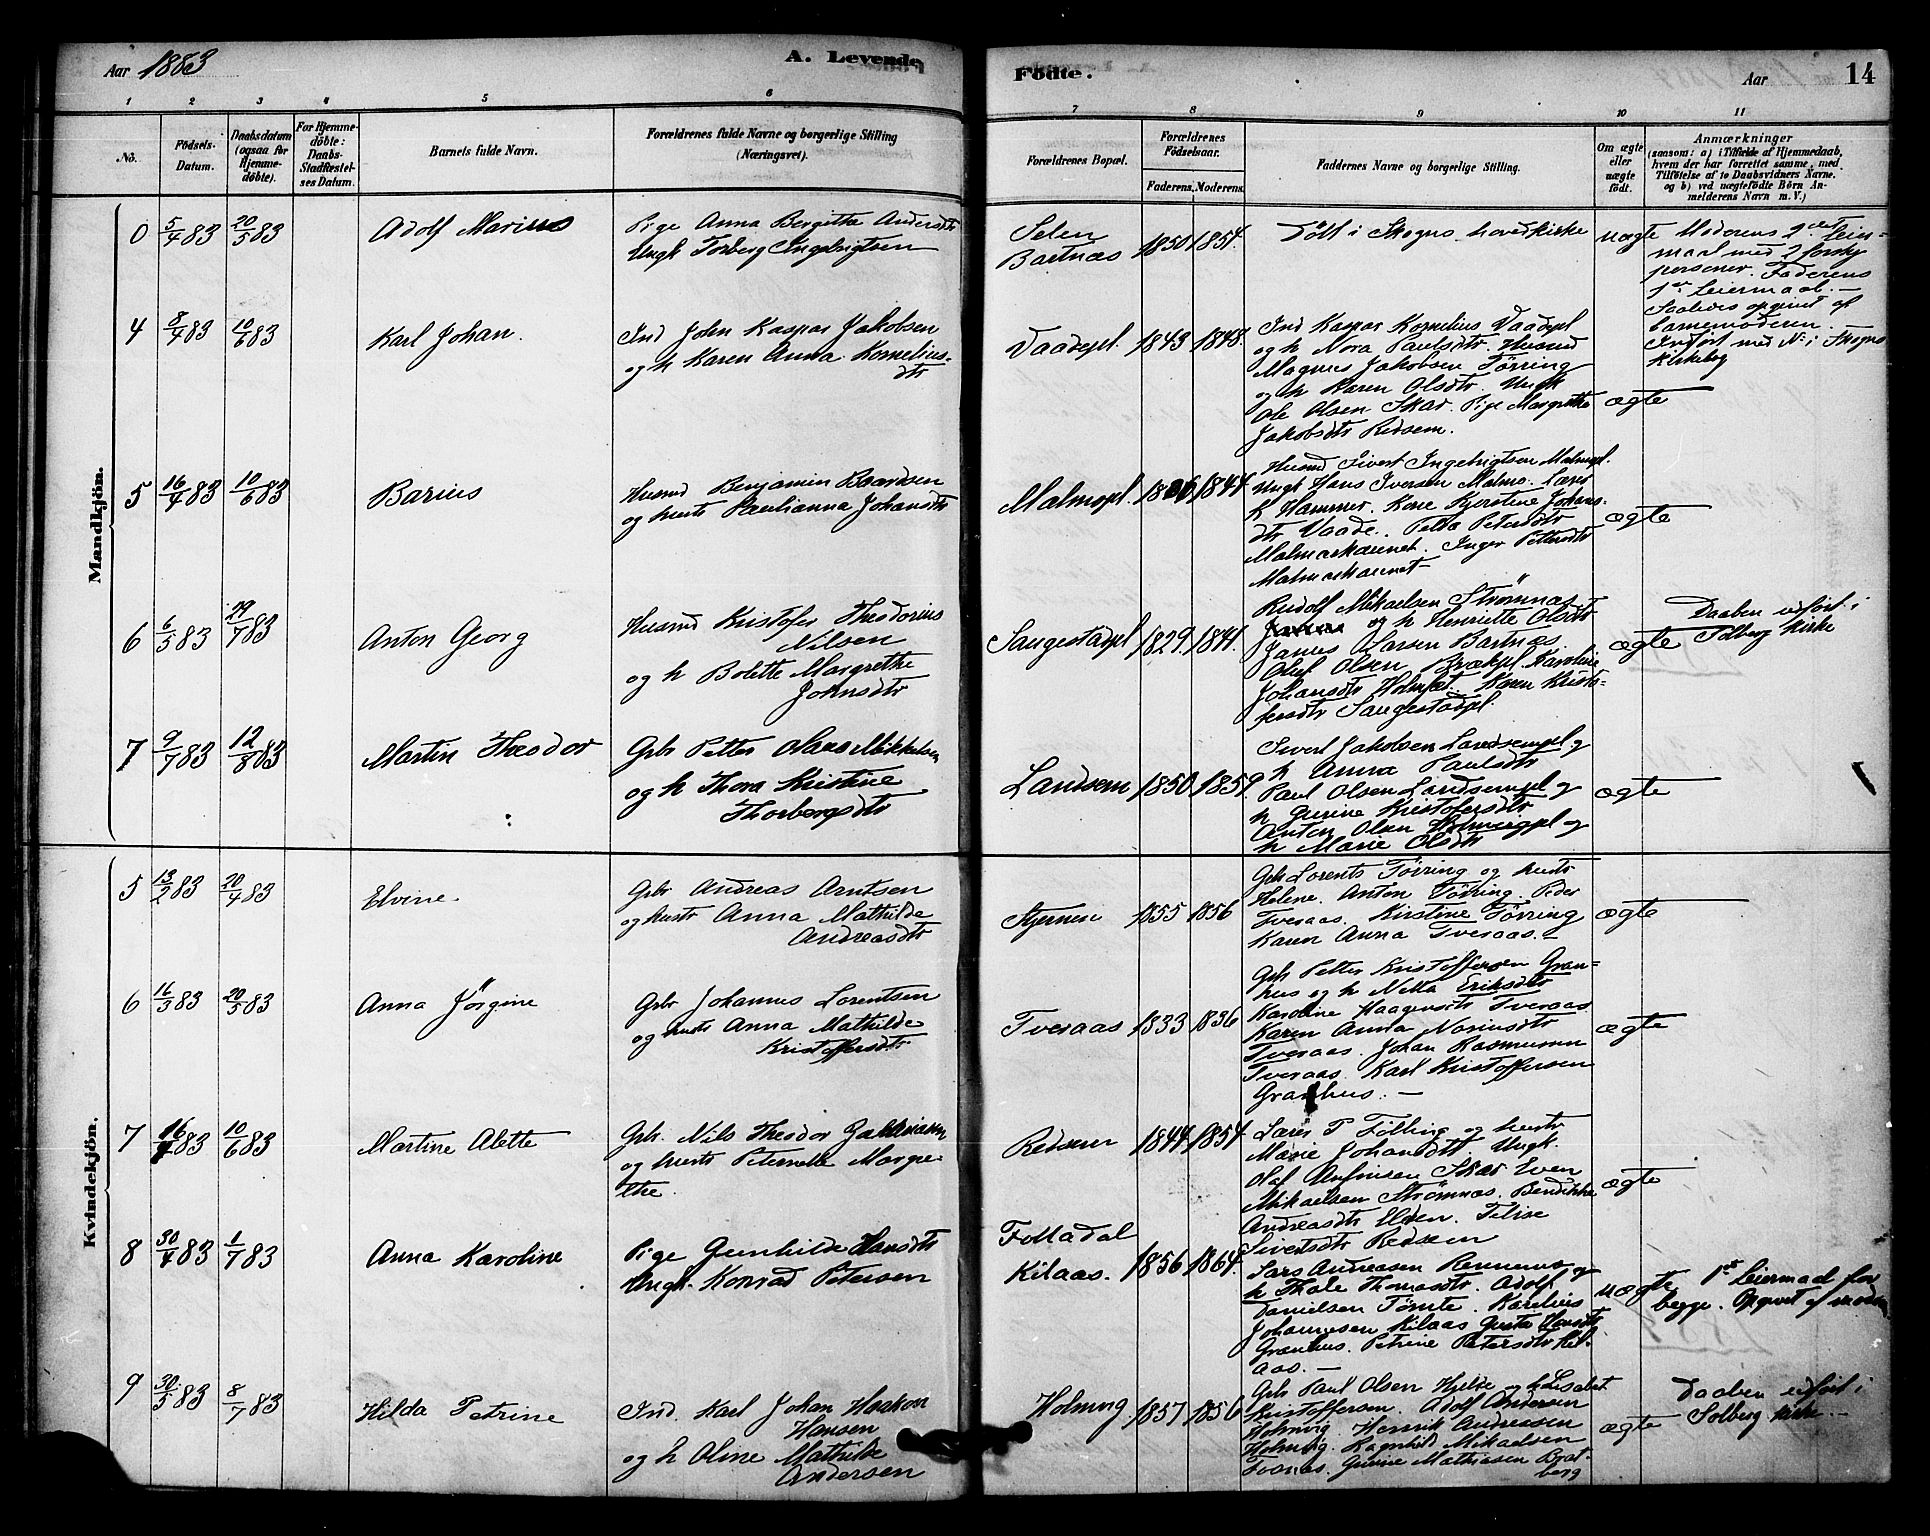 Aar 1883
A. Levende
Födte.
Aar
14
1 2 3 4 5 6
7 8 9 10 11
No.
Födsels-
Datum.
Daabsdatum
(ogsaa for
Hjemme-
döbte).
For Hjemme-
döbte:
Daabs-
Stadfæstel-
ses Datum.
Barnets fulde Navn.
Forældrenes fulde Navne og borgerlige Stilling
(Næringsvei).
Forældrenes Bopæl.
Forældrenes
Födselsaar.
Faderens. Moderens.
Faddernes Navne og borgerlige Stilling.
Om ægte
eller
uægte
födt.
Anmærkninger
(saasom: a) i Tilfælde af Hjemmedaab,
hvem der har forrettet samme, med
Tilföielse af to Daabsvidners Navne.
og b) ved uægtefödte Börn An-
melderens Navn m. V.)
Mandkjön.
0 5/4 83 20/5 83 Adolf Marius
Pige Anna Bergitta Andersdt
Ungk Torberg Ingebrigtsen
Selen
Bartnæs 1850 1854.
Døbt i Skogns hovedkirke
uægte
Moderens 2det Leir-
maal med 2 forskj
personer. Faderens
1ste Leiermaal. –
Saaledes opgivet af
barnemoderen.
Indført med No i Skogns
kirkebog
4 8/4 83 10/6 83 Karl Johan.
Ind John Kaspar Jakobsen
og h Karen Anna Kornelius-
dtr
Vaadepl. 1843 1848.
Ind Kaspar Kornelius Vaadepl
og h Nora Paulsdtr. Husmd
Magnus Jakobsen Tørring
og h Karen Olsdtr. Ungk
Ole Olsen Skar. Pige Margrethe
Jakobsdtr Redsem.
ægte
5 16/4 83 10/6 83 Barius
Husmd Benjamin Baardsen
og hustr Paulianna Johansdtr
Malmopl. 1844.
Husmd Sivert Ingebrigtsen Malmopl.
Ungk Hans Iversen Malmo. Lærer
K Hammer. Kone Kjerstine Johans-
dtr Vaade. Petra Petersdtr
Malmoskaunet. Inger Pettersdtr
Malmoskaunet
ægte
6 6/5 83 29/7 83 Anton Georg
Husmd Kristofer Theodorius
Nilsen
og h Bolette Margrethe
Johnsdtr
Saugestadpl 1829. 1841.
Rudolf Mikaelsen Strømnæs
og h Henriette Olsdtr
Janus Larsen Bartnæs
Oluf Olsen Brækpl. Karoline
Johansdtr Holmset. Karen Kristo-
fersdtr Saugestadpl.
ægte
Daaben udført i
Solberg Kirke
7 9/7 83 12/8 83 Martin Theodor
Gbr Petter Olaus Mikkelsen
og h Thora Kristine
Thorbergsdtr
Landsem 1850 1859.
Sivert Jakobsen Landsempl og
h Anna Paulsdtr
Paul Olsen Landsempl og
h Gurine Kristofersdtr
Anton Olsen Holmvigpl og
h Marie Olsdtr
ægte
Kvindekjön.
5 13/2 83 20/4 83 Elvine.
Gbr Andreas Arntsen
og hustr Anna Mathilde
Andreasdtr
Stjernesi 1855 1856
Gbr Lorents Tørring og hustr
Helene. Anton Tørring. Peder
Tveraas. Kirstine Tørring
Karen Anna Tveraas. –
ægte
6 16/3 83 20/5 83 Anna Jørgine
Gbr Johannes Lorentsen
og hustr Anna Mathilde
Kristoffersdtr
Tveraas 1833 1836
Gbr Petter Kristoffersen Gran-
hus og h Netta Eriksdtr
Karoline Haagensdtr Tveraas
Karen Anna Nariusdtr
Tveraas. Johan Rasmussen
Tveraas. Karl Kristoffersen
Granhus. –
ægte
7 16/4 83 10/6 83 Martine Alette
Gbr. Nils Theodor Zakkariasen
og hustr Peternella Margre-
the.
Redsem 1844 1854.
Lars P Følling og hustr
Marie Johansdtr. Ungk.
Olaf Anfinsen Skar. Even
Mikaelsen Strømnæs. Bendikke
Andreasdtr Elden. Felise
Sivertsdtr Redsem
ægte
8 30/4 83 1/7 83 Anna Karoline
Pige Gunhilde Hansdtr
Ungk. Konrad Petersen
Folladal
Kilaas. 1856 1864.
Lars Andreasen Rennems og
h Thale Thomasdtr. Adolf
Danielsen Tømte. Karelius
Johannesen Kilaas Gusta Hansdtr
Granhus. Petrine Petersdtr Kil-
aas. –
uægte
1ste Leiermaal for
begge. Opgivet af moderen
9 30/5 83 8/7 83 Hilda Petrine
Ind. Karl Johan Haakon
Hansen
og h Oline Mathilde
Andersen
Holmvig 1857 1856
Gbr Paul Olsen Hjelde og h Lisabet
Kristoffersen. Adolf Andersen
Holmvig. Henrik Andreassen
Holmvig. Ragnhild Mikaelsen
Tvonæs. Gurine Mathiasen Brat-
berg
ægte
Daaben udført i
Solberg kirke. –